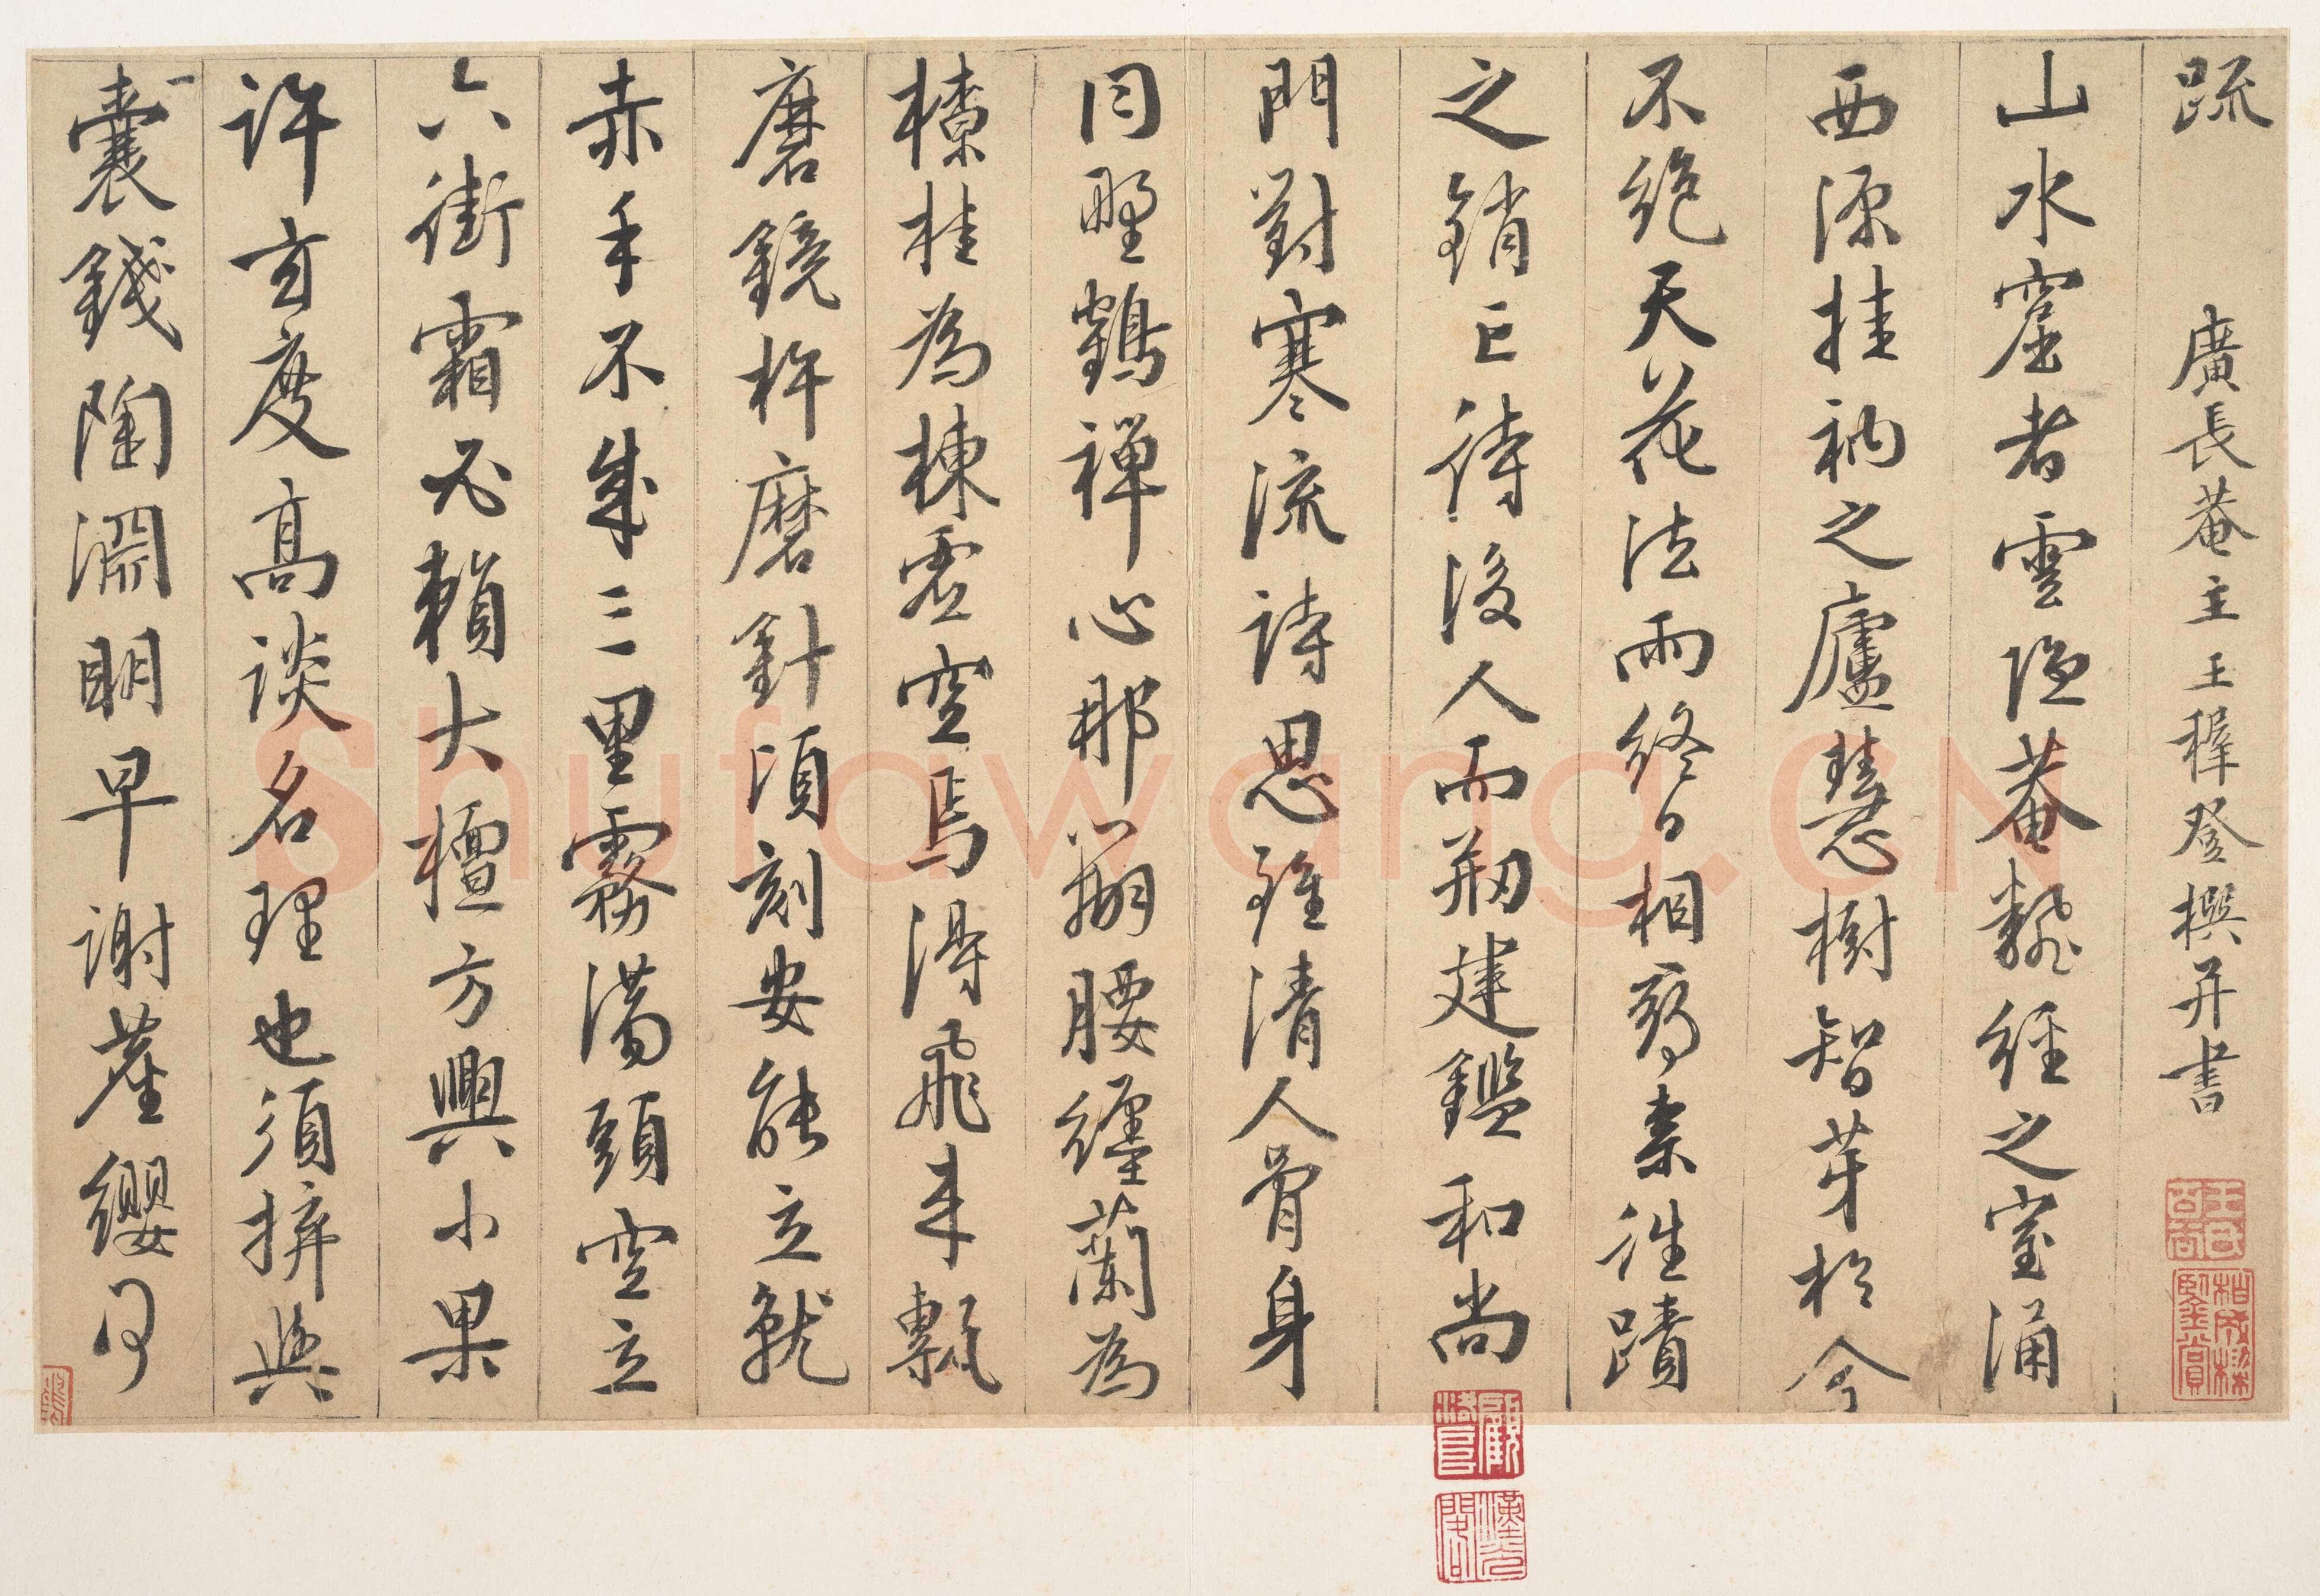 疏 廣長菴主王穉登撰并書
山水窟者雲隱菴翻經之室涌
西源挂衲之廬慧樹智芽於今
不絕天花法雨終日相霑素往蹟
之銷亡待後人而剏建鑑和尚
門對寒流詩思雖清人骨身
同野鶴禪心那繫腰纏蘭為
橑桂為棟虛空焉得飛來甎
磨鏡杵磨針頃刻安能立就
赤手不成三里霧滿頭空立
六街霜必賴大檀方興小果
許玄度高談名理也須拚與
一囊錢陶淵明早謝塵纓何
Shufawang.CN